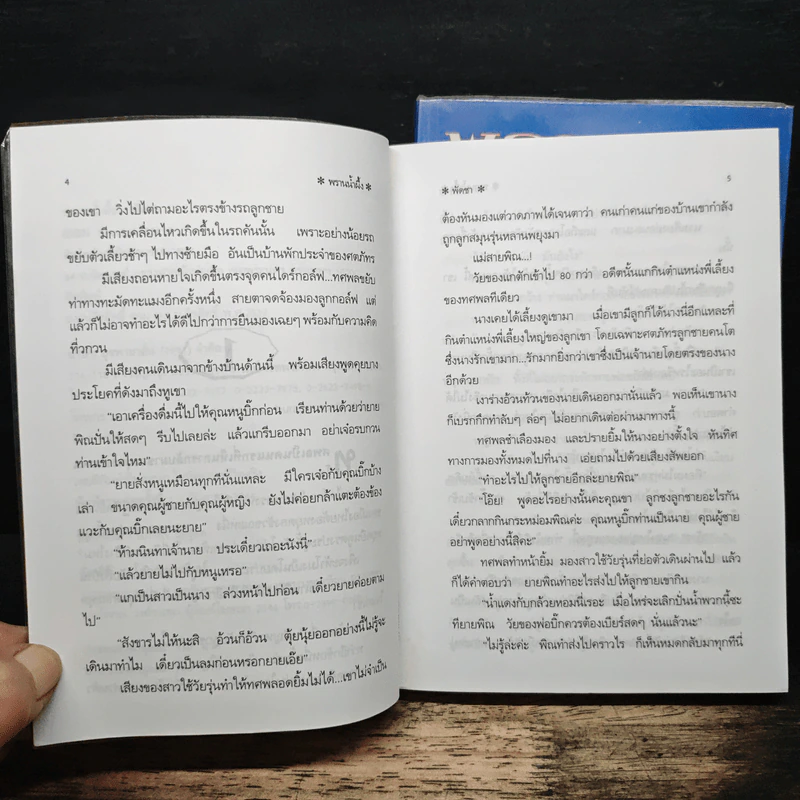 4
* พรานน้ำผึ้ง *
ของเขา วิ่งไปไต่ถามอะไรตรงข้างรถลูกชาย
มีการเคลื่อนไหวเกิดขึ้นในรถคันนั้น เพราะอย่างน้อยรถ
ขยับตัวเลี้ยวช้าๆ ไปทางซ้ายมือ อันเป็นบ้านพักประจำของศตภัทร
มีเสียงถอนหายใจเกิดขึ้นตรงจุดคนไดร์กอล์ฟ...ทศพลขยับ
ท่าทางทะมัดทะแมงอีกครั้งหนึ่ง สายตาจดจ้องมองลูกกอล์ฟ แต่
แล้วก็ไม่อาจทำอะไรได้ดีไปกว่าการยืนมองเฉยๆ พร้อมกับความคิด
ที่วกวน
มีเสียงคนเดินมาจากข้างบ้านด้านนี้ พร้อมเสียงพูดคุยบาง
ประโยคที่ดังมาถึงหูเขา
“เอาเครื่องดื่มนี้ไปให้คุณหนูบิ๊กก่อน เรียนท่านด้วยว่ายาย
พิณปั่นให้สดๆ รีบไปเลยล่ะ แล้วแกรีบออกมา อย่าเจ๋อรบกวน
ท่านเข้าใจไหม”
“ยายสั่งหนูเหมือนทุกทีนั่นแหละ มีใครเจ๋อกับคุณบิ๊กบ้าง
เล่า ขนาดคุณผู้ชายกับคุณผู้หญิง ยังไม่ค่อยกล้าแตะต้องข้อง
แวะกับคุณบิ๊กเลยนะยาย”
“ห้ามนินทาเจ้านาย ประเดี๋ยวเถอะนังนี่”
“แล้วยายไม่ไปกับหนูเหรอ”
“แกเป็นสาวเป็นนาง ล่วงหน้าไปก่อน เดี๋ยวยายค่อยตาม
ไป”
“สังขารไม่ให้นะสิ อ้วนก็อ้วน ตุ้ยนุ้ยออกอย่างนี้ไม่รู้จะ
เดินมาทำไม เดี๋ยวเป็นลมก่อนหรอกยายเอ๊ย”
เสียงของสาวใช้วัยรุ่นทำให้ทศพลอดยิ้มไม่ได้...เขาไม่จำเป็น
* พัดชา *
5
ต้องหันมองแต่วาดภาพได้เจนตาว่า คนเก่าคนแก่ของบ้านเขากำลัง
ถูกลูกสมุนรุ่นหลานพยุงมา
แม่สายพิณ...!
วัยของแกตักเข้าไป 80 กว่า อดีตนั้นแกกินตำแหน่งพี่เลี้ยง
ของทศพลทีเดียว
นางเคยได้เลี้ยงดูเขามา เมื่อเขามีลูกก็ได้นางนี่อีกแหละที่
กินตำแหน่งพี่เลี้ยงใหญ่ของลูกเขา โดยเฉพาะศตภัทรลูกชายคนโต
ซึ่งนางรักเขามาก...รักมากยิ่งกว่าเขาซึ่งเป็นเจ้านายโดยตรงของนาง
อีกด้วย
เงาร่างอ้วนท้วนของนายเดินออกมานั่นแล้ว พอเห็นเขานาง
ก็เบรกกึกทำลับๆ ล่อๆ ไม่อยากเดินต่อผ่านมาทางนี้
ทศพลชำเลืองมอง และปรายยิ้มให้นางอย่างตั้งใจ หันทิศ
ทางการมองทั้งหมดไปที่นาง เอ่ยถามไปด้วยเสียงสัพยอก
“ทำอะไรไปให้ลูกชายอีกล่ะยายพิณ”
“โอ๊ย! พูดอะไรอย่างนั้นคะคุณขา ลูกชงลูกชายอะไรกัน
เดี๋ยวกลากกินกระหม่อมพิณค่ะ คุณหนูบิ๊กท่านเป็นนาย คุณผู้ชาย
อย่าพูดอย่างนี้สิคะ”
ทศพลทำหน้ายิ้ม มองสาวใช้วัยรุ่นที่ย่อตัวเดินผ่านไป แล้ว
ก็ได้คำตอบว่า ยายพิณทำอะไรส่งไปให้ลูกชายเขากิน
“น้ำแดงกับกล้วยหอมนี่เรอะ เมื่อไหร่จะเลิกปั่นน้ำพวกนี้ซะ
ทียายพิณ วัยของพ่อบิ๊กควรต้องเบียร์สดๆ นั่นแล้วนะ”
“ไม่รู้ล่ะค่ะ พิณทำส่งไปคราวไร ก็เห็นหมดกลับมาทุกทีนี่